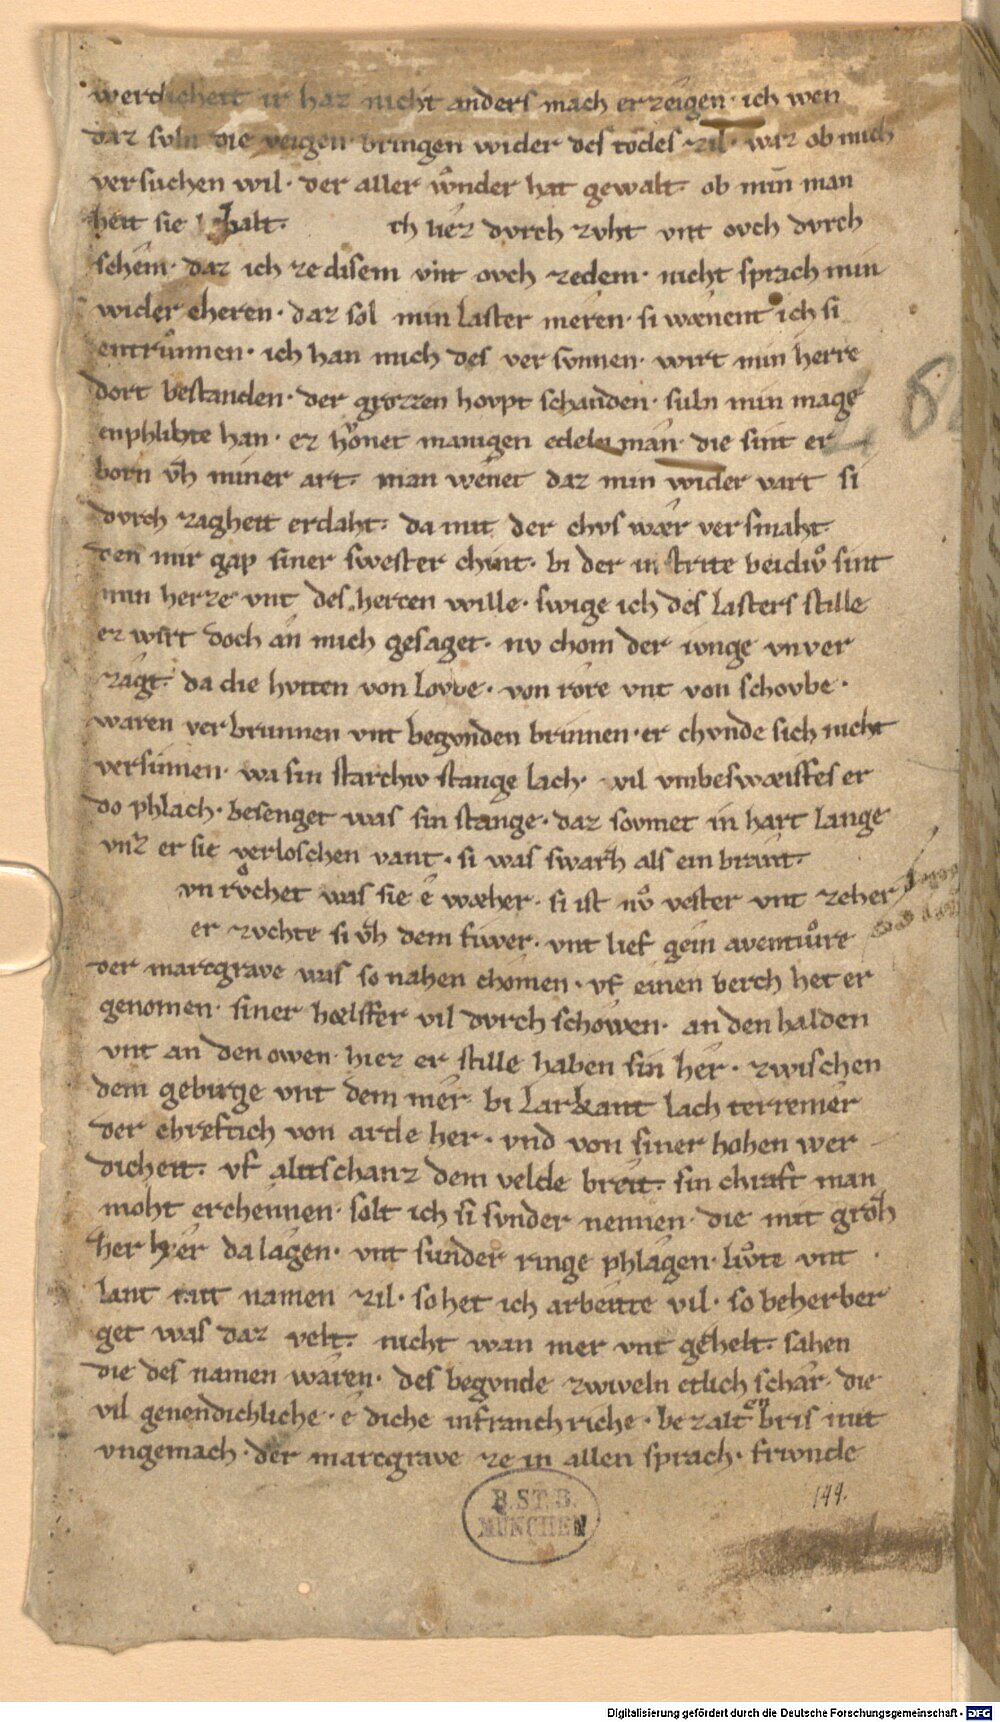 werdicheit ir haz nicht anders mach erzeigen · ich wen
daz svln die veigen bringen wider des todes zil · waz ob mich
versuchen wil · der aller wnder hat gewalt · ob min man
heit sie halt · ch liez dvrch zvht vnt ovch dvrch
schem · daz ich ze disem vnt ovch zedem · nicht sprach min
wider cheren · daz sol min laster meren · si wænent ich si
entrunnen · ich han mich des versvnnen · wirt min herre
dort bestanden · der grozzen hovpt schanden · suln min mage
enphlihte han · ez honet manigen edelen man · die sint er
born vzh miner art · man wenet daz min wider vart si
dvrch zagheit erdaht · da mit der chvs wær versmaht
den mir gap siner swester chint · bi der in strite beidiv sint
min herze vnt des herten wille · swige ich des lasters stille
ez wirt doch an mich gesaget · nv chom der ivnge vnver
zagt · da die hvtten von lovbe · von rore vnt von schovbe ·
waren verbrunnen vnt begvnden brinnen · er chvnde sich nicht
versinnen · wa sin starchiv stange lach · vil vmbeswæiffes er
do phlach · besenget was sin stange · daz sovmet in hart lange
vnz er sie verloschen vant · si was swarzh als ein brant ·
vn rochet was sie e wæher · si ist nv vester vnt zeher
er zvchte si vzh dem fiwer · vnt lief gein aventivre
der marcgrave was so nahen chomen · vf einen berch het er
genomen · siner hælffer vil dvrch schowen · an den halden
vnt an den owen · hiez er stille haben sin her · zwischen
dem gebirge vnt dem mer · bi Larkant lach terremer
der chreftich von arde her · vnd von siner hohen wer
dicheit · vf alitschanz dem velde breit · sin chraft man
moht erchennen · solt ich si svnder nennen · die mit grozh
her hær da lagen · vnt sunder ringe phlagen · livte vnt
lant mit namen zil · so het ich arbeitte vil · so beherber
get was daz velt · nicht wan mer vnt gehelt · sahen
die des namen waren · des begvnde zwiveln etlich schar · die
vil genendichliche · e diche in franchriche · bezalten bris mit
vngemach · der marcgrave ze in allen sprach · frivnde
B.ST.B.
MÜNCHEN
144.
Digitalisierung gefördert durch die Deutsche Forschungsgemeinschaft - DFG